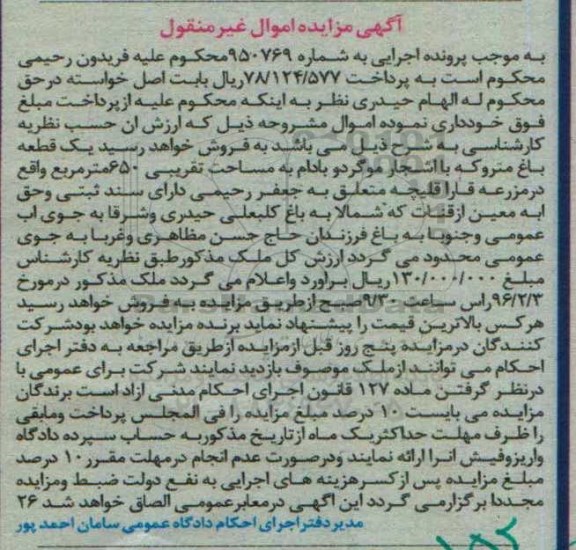 آگهی مزایده اموال غیر منقول
به موجب پرونده اجرایی به شماره ۹۵۰۷۶۹محکوم علیه فریدون رحیمی
محکوم است به پرداخت ۷۸/۱۲۴/۵۷۷ریال بابت اصل خواسته درحق
محکوم له الهام حیدری نظر به اینکه محکوم علیه ازپرداخت مبلغ
فوق خودداری نموده اموال مشروحه ذیل که ارزش ان حسب نظریه
کارشناسی به شرح ذیل می باشد به فروش خواهد رسید یک قطعه
باغ متروکه با اشجار موگردو بادام به مساحت تقریبی ۶۵۰مترمربع واقع
درمزرعه قارا قلیچه متعلق به جعفر رحیمی دارای سند ثبتی وحق
ابه معین ازقنات که شمالا به باغ کلبعلی حیدری وشرقا به جوی اب
عمومی وجنوبا به باغ فرزندان حاج حسن مظاهری وغربا به جوی
عمومی محدود می گردد ارزش کل ملک مذکورطبق نظریه کارشناس
مبلغ ۱۳۰/۰۰۰/۰۰۰ریال براورد واعلام می گردد ملک مذکور درمورخ
۹۶/۲/۳راس ساعت ۹/۳۰صبح ازطریق مزایده به فروش خواهد رسید
هرکس بالاترین قیمت را پیشنهاد نماید برنده مزایده خواهد بودشرکت
کنندگان درمزایده پنج روز قبل ازمزایده ازطریق مراجعه به دفتر اجرای
احکام می توانند ازملک موصوف بازدید نمایند شرکت برای عمومی با
درنظر گرفتن ماده ۱۲۷ قانون اجرای احکام مدنی ازاد است برندگان
مزایده می بایست ۱۰ درصد مبلغ مزایده را فی المجلس پرداخت ومابقی
را ظرف مهلت حداکثریک ماه ازتاریخ مذکوربه حساب سپرده دادگاه
واریزوفیش انرا ارائه نمایند ودرصورت عدم انجام درمهلت مقرر ۱۰ درصد
مبلغ مزایده پس ازکسرهزینه های اجرایی به نفع دولت ضبط ومزایده
مجددا برگزارمی گردد این اگهی درمعابرعمومی الصاق خواهد شد ۲۶
مدیردفتراجرای احکام دادگاه عمومی سامان احمد پور